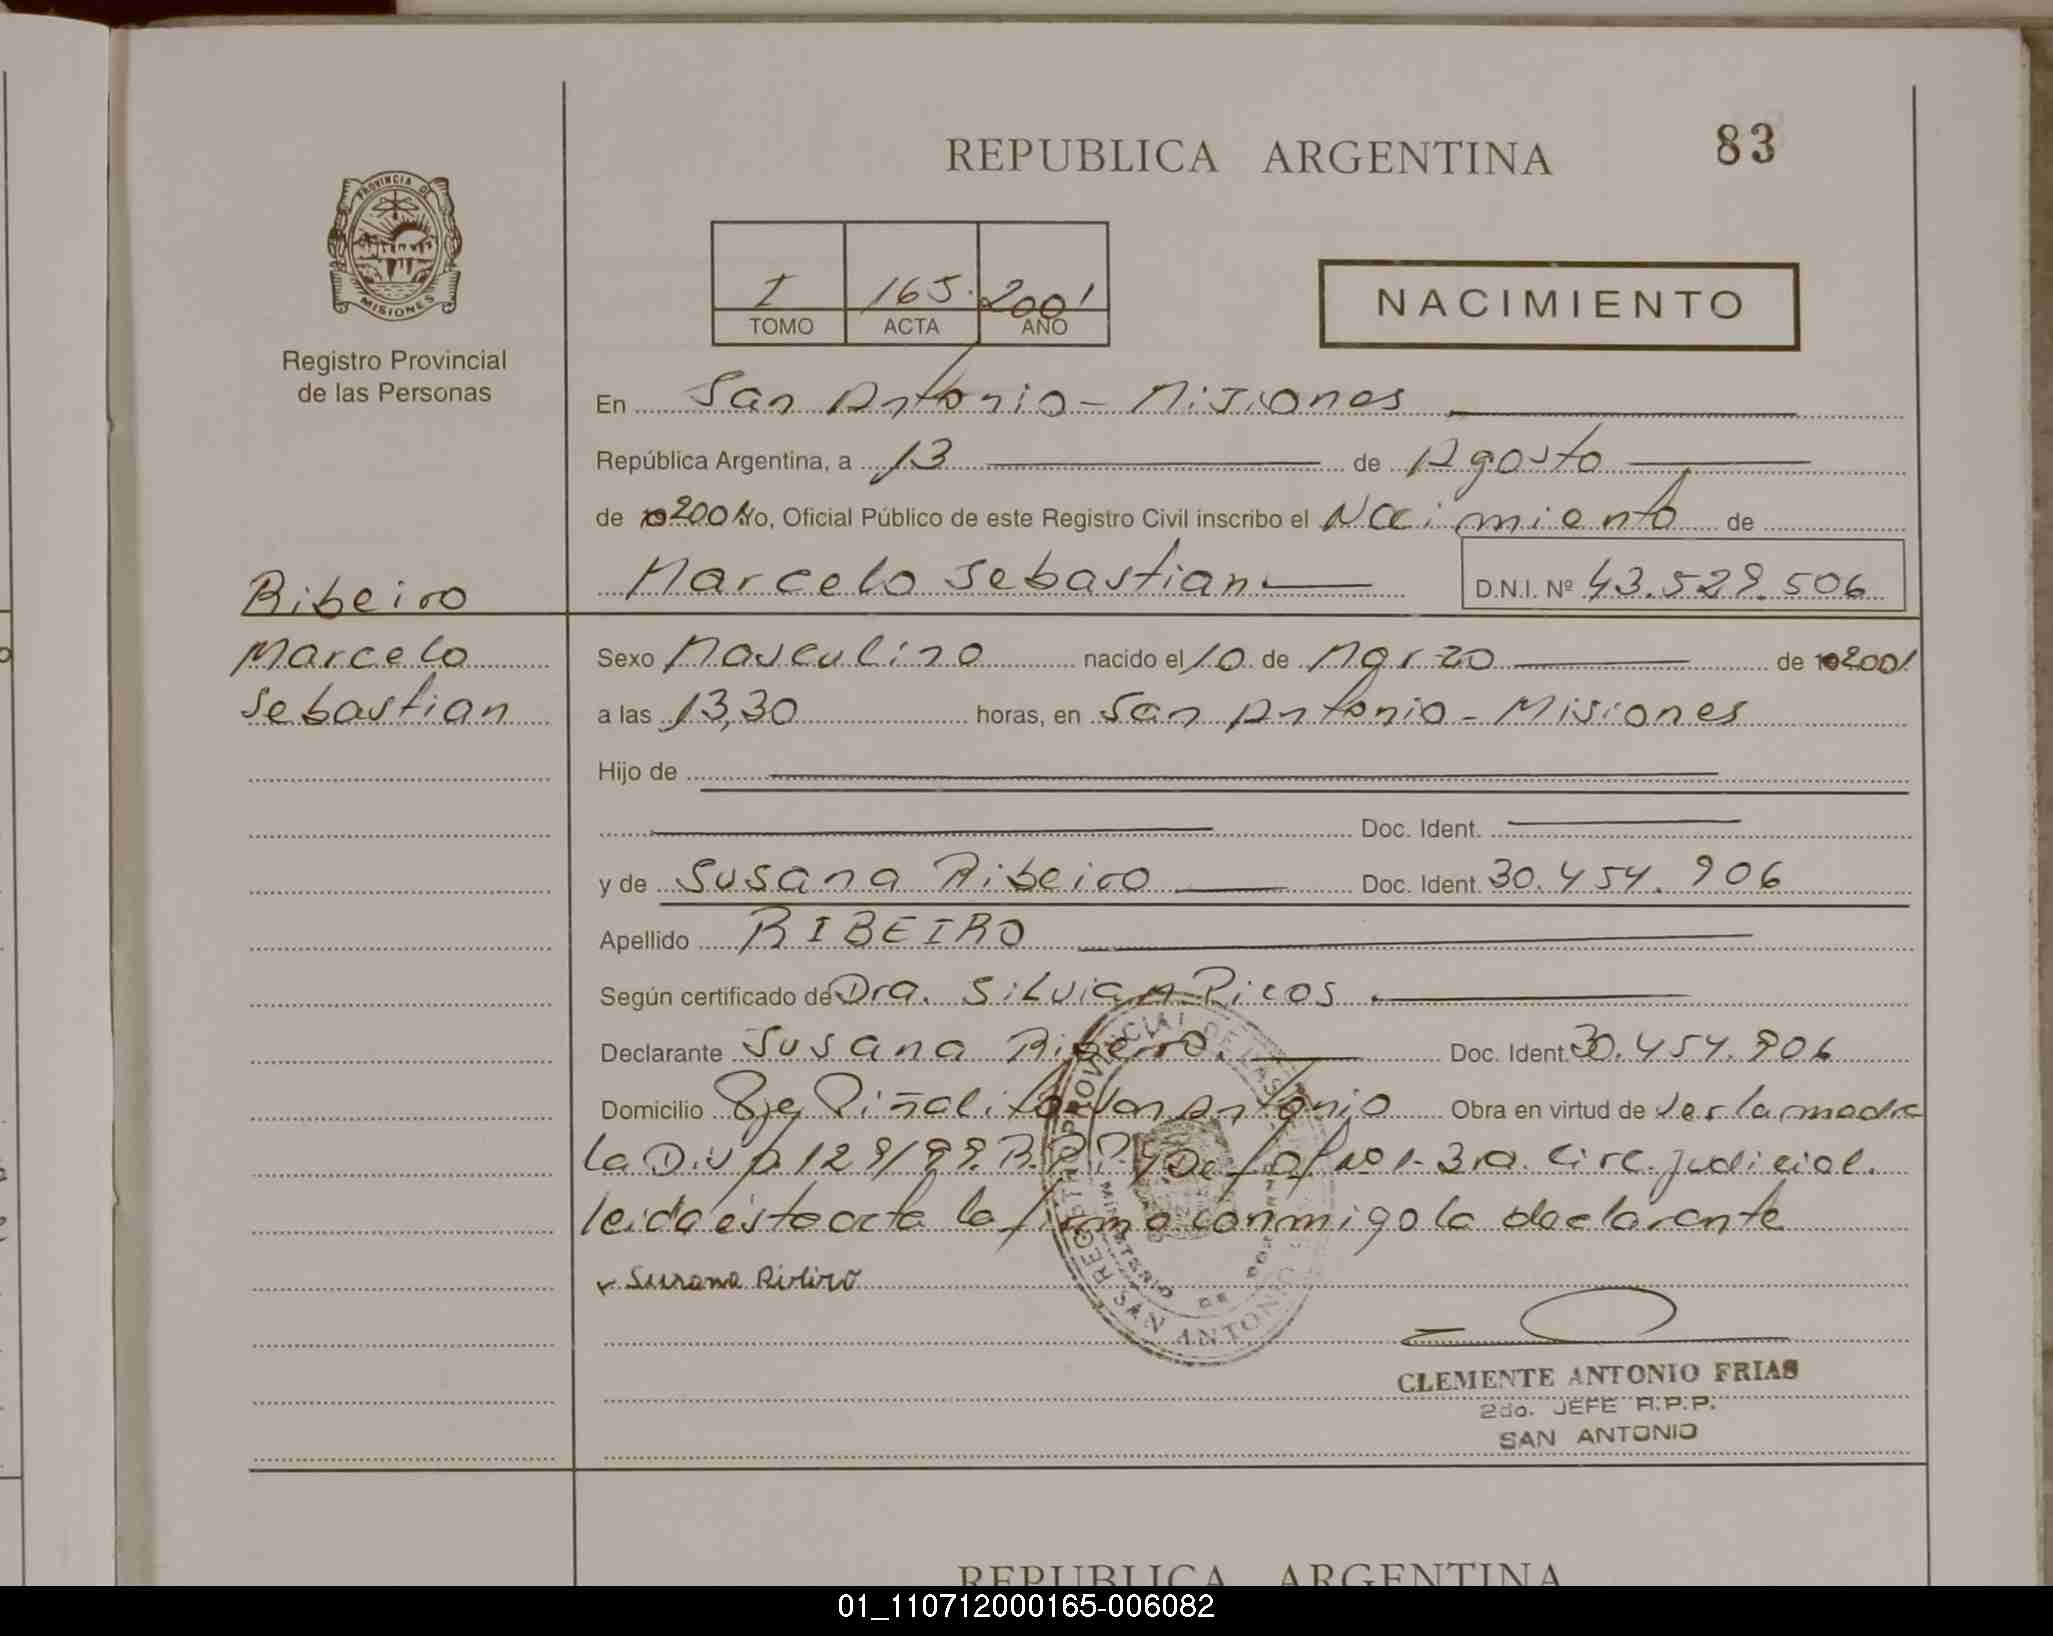 REPUBLICA ARGENTINA
83
PROVINCIA DE
MISIONES
Registro Provincial
de las Personas
I 165. 2001
TOMO ACTA AÑO
NACIMIENTO
En San Antonio - Misiones
República Argentina, a 13 de Agosto
de 2001 Yo, Oficial Público de este Registro Civil inscribo el Nacimiento de
Marcelo Sebastian D.N.I. Nº 43.529.506
Ribeiro
Marcelo
Sebastian
Sexo Masculino nacido el 10 de Marzo de 2001
a las 13,30 horas, en San Antonio - Misiones
Hijo de
Doc. Ident.
y de Susana Ribeiro Doc. Ident. 30.454.906
Apellido RIBEIRO
Según certificado de Dra. Silvia Picos.
Declarante Susana Ribeiro. Doc. Ident. 30.454.906
Domicilio Pje Piñalito San Antonio Obra en virtud de ser la madre
la Disp. 129/99. R.P.P. y Def. Of. Nº 1- 3ra. Circ. judicial.
leida ésta acta la firma conmigo la declarante
Susana Ribeiro
REGISTRO PROVINCIAL DE LAS
MINISTERIO DE GOBIERNO
SAN ANTONIO
CLEMENTE ANTONIO FRIAS
2do. JEFE R.P.P.
SAN ANTONIO
REPUBLICA ARGENTINA
01_110712000165-006082